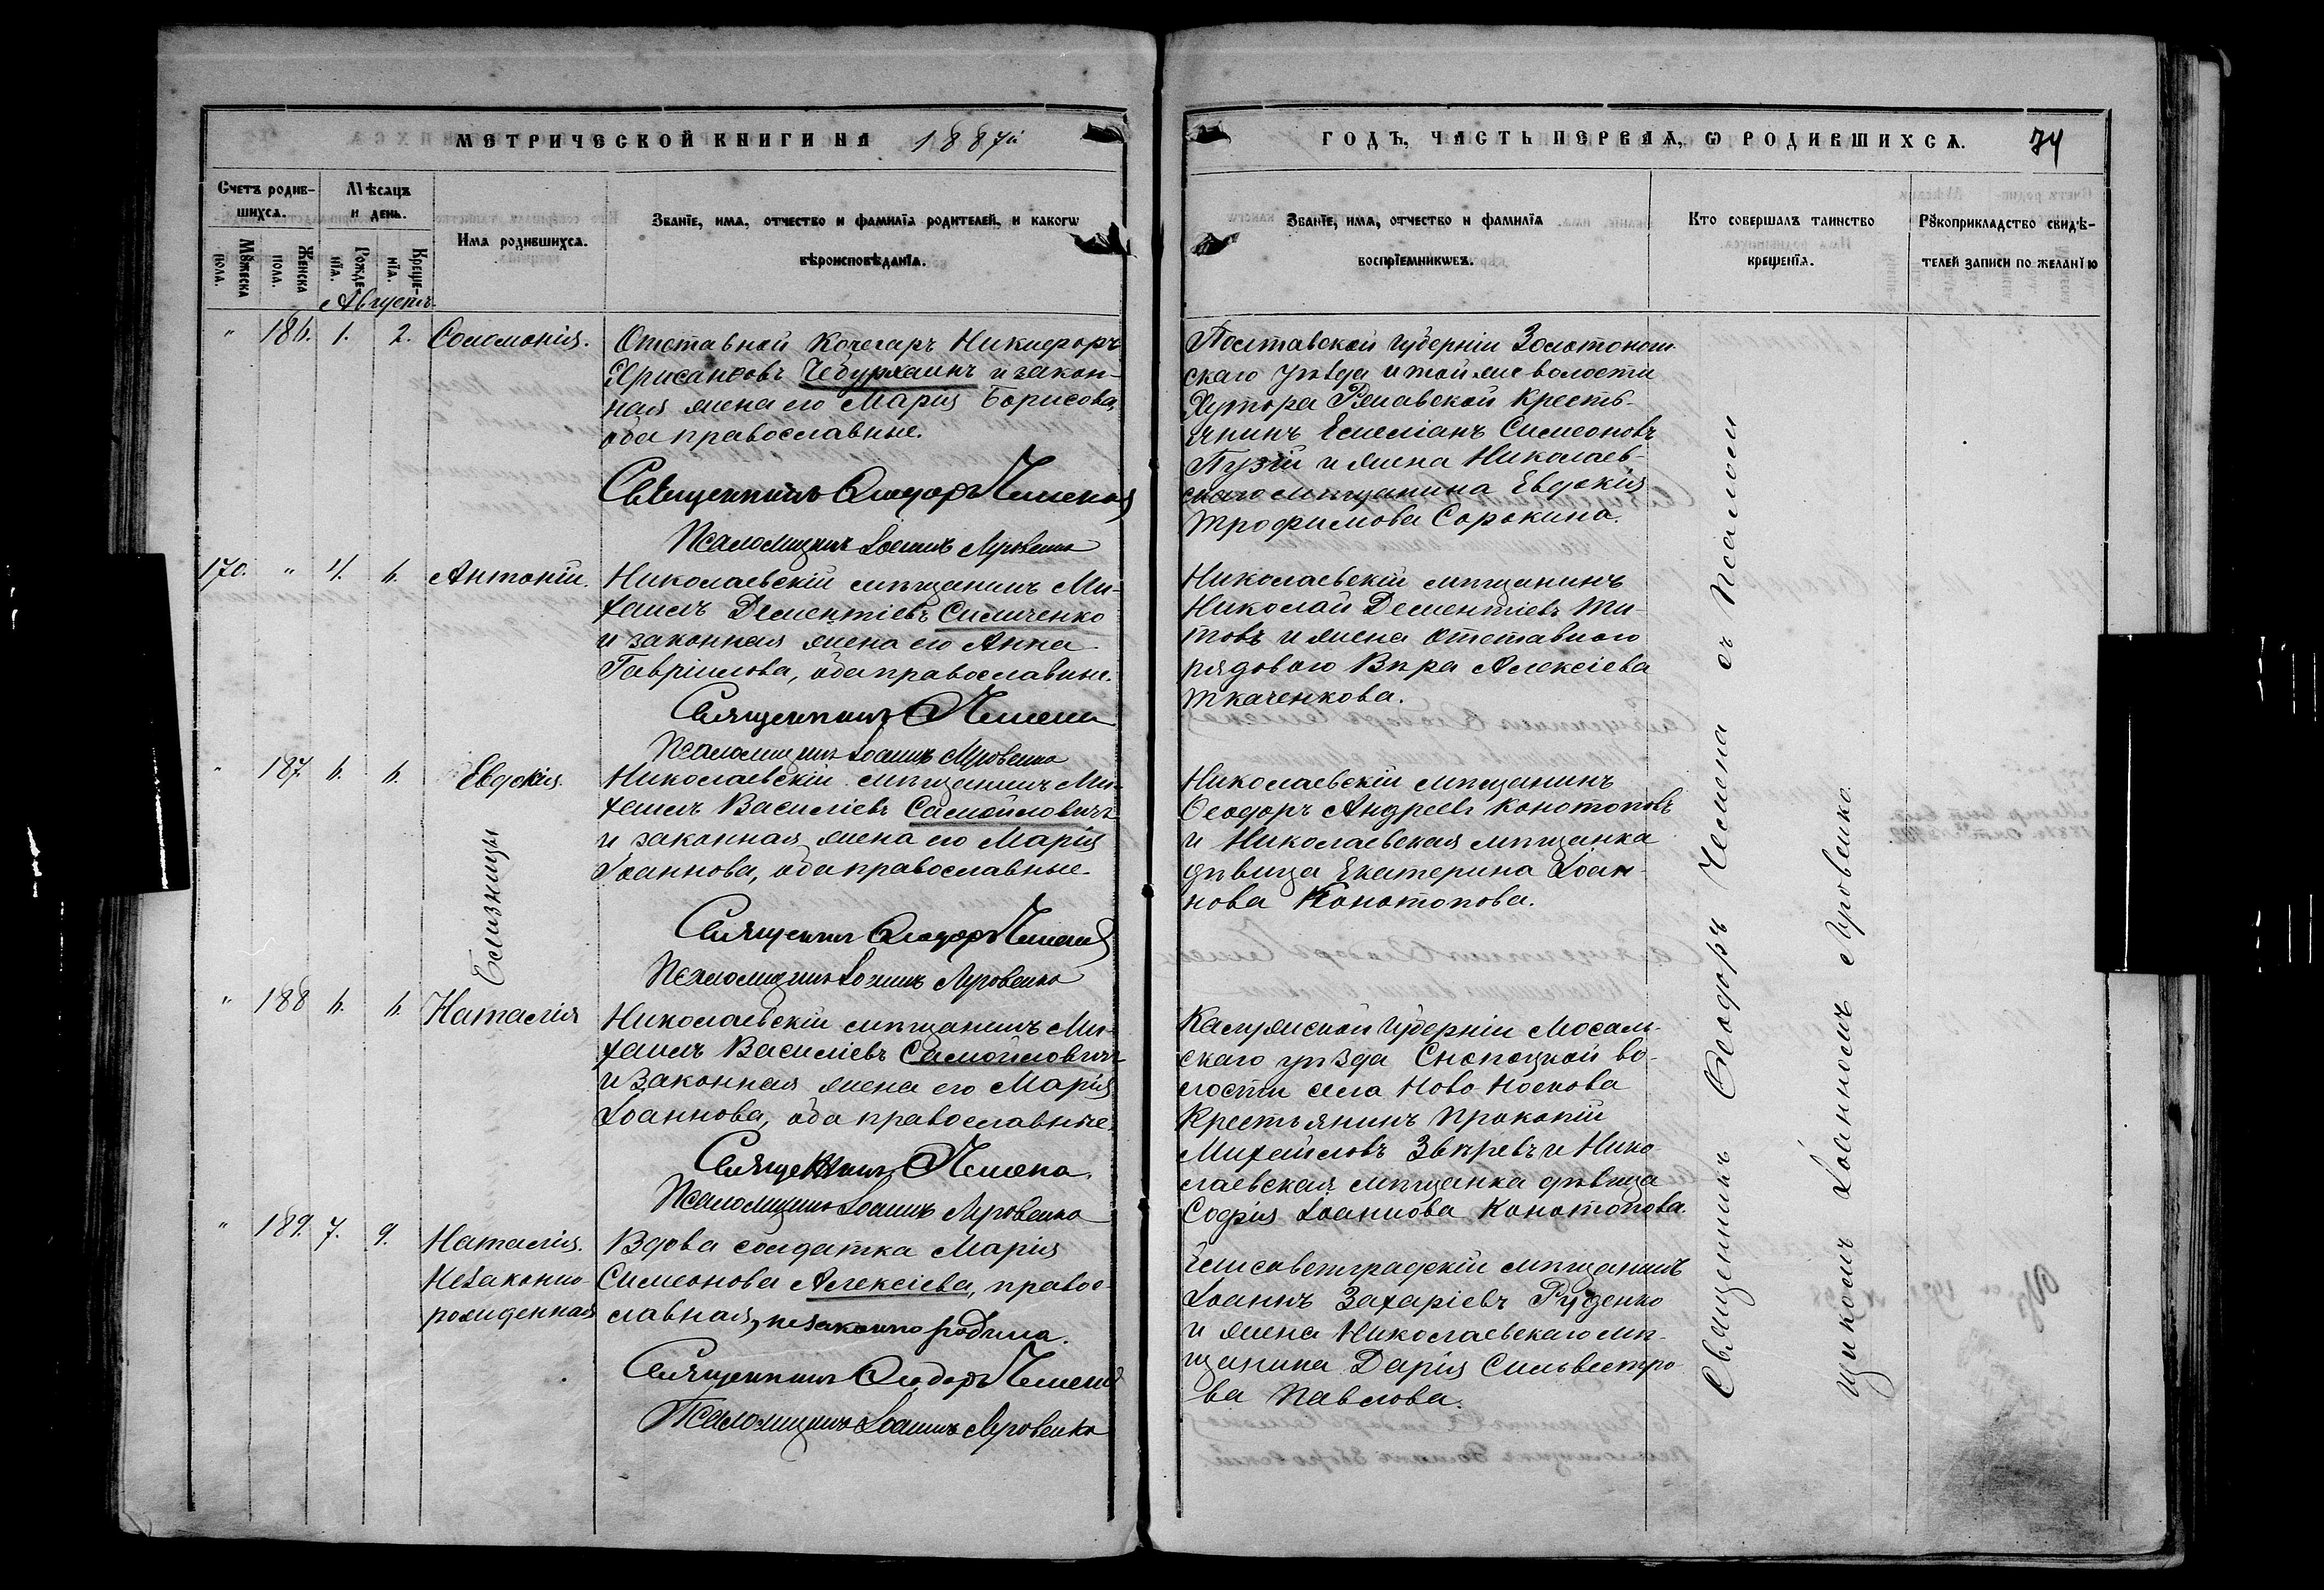 МЕТРИЧЕСКОЙ КНИГИ НА 1887й
ГОДЪ, ЧАСТЬ ПЕРВАЯ, Ѡ РОДИВШИХСѦ. 74
Счетъ родив-
шихсѧ.
Мѣсѧцъ
и день.
Имѧ родившихсѧ.
Званїе, имѧ, отчество и фамилїѧ родителей, и какогѡ
вѣроисповѣданїѧ.
Мꙋжеска
пола.
Женска
пола.
Рожде-
нїѧ.
Креще-
нїѧ.
Званїе, имѧ, отчество и фамилїѧ
воспрїемникѡвъ.
Кто совершалъ таинство
крещенїѧ.
Рꙋкоприкладство свидѣ-
телей записи по желанїю
Августъ
" 186. 1. 2. Соломонія.
Отставной Кочегаръ Никифоръ
Хрисанѳовъ Чебурхаинъ и закон-
ная жена его Марія Борисова,
оба православные.
Священникъ Ѳеодоръ Чемена
Псаломщикъ Іоаннъ Яровенко
Полтавской губерніи Золотонош-
скаго уѣзда и той же волости
Хутора Ржавской Кресть-
янинъ Емеліанъ Симеоновъ
Пузій и жена Николаев-
скаго мѣщанина Евдокія
Трофимова Сорокина.
170. " 4. 6. Антоній.
Николаевскій мѣщанинъ Ми-
хаилъ Дементіевъ Симиченко
и законная жена его Анна
Гавріилова, оба православные.
Священникъ Ѳ Чемена
Псаломщикъ Іоаннъ Яровенко
Николаевскій мѣщанинъ
Николай Дементіевъ Ти-
товъ и жена отставного
рядового Вѣра Алексіева
Ткаченкова.
" 187. 6. 6. Евдокія.
Близницы
Николаевскій мѣщанинъ Ми-
хаилъ Василіевъ Самойловичъ
и законная жена его Марія
Іоаннова, оба православные.
Священникъ Ѳеодоръ Чемена
Псаломщикъ Іоаннъ Яровенко
Николаевскій мѣщанинъ
Ѳеодоръ Андреевъ Конотоповъ
и Николаевская мѣщанка
дѣвица Екатерина Іоан-
нова Конотопова.
" 188 6. 6. Наталія
Николаевскій мѣщанинъ Ми-
хаилъ Василіевъ Самойловичъ
и законная жена его Марія
Іоаннова, оба православные.
Священникъ Ѳ Чемена.
Псаломщикъ Іоаннъ Яровенко
Калужской губерніи Мосаль-
скаго уѣзда Снопоцкой во-
лости села Ново Носкова
Крестьянинъ Прокопій
Михайловъ Звѣревъ и Нико-
лаевская мѣщанка дѣвица
Софія Іоаннова Конотопова
" 189. 7. 9. Наталія.
Незаконно-
рожденная
Вдова солдатка Марія
Симеонова Алексіева, право-
славная, незаконно родила.
Священникъ Ѳеодоръ Чемена
Псаломщикъ Іоаннъ Яровенко
Елисаветградскій мѣщанинъ
Іоаннъ Захаріевъ Руденко
и жена Николаевскаго мѣ-
щанина Дарія Сильвестро-
ва Павлова.
Священникъ Ѳеодоръ Чемена съ Псалом
щикомъ Іоанномъ Яровенко.